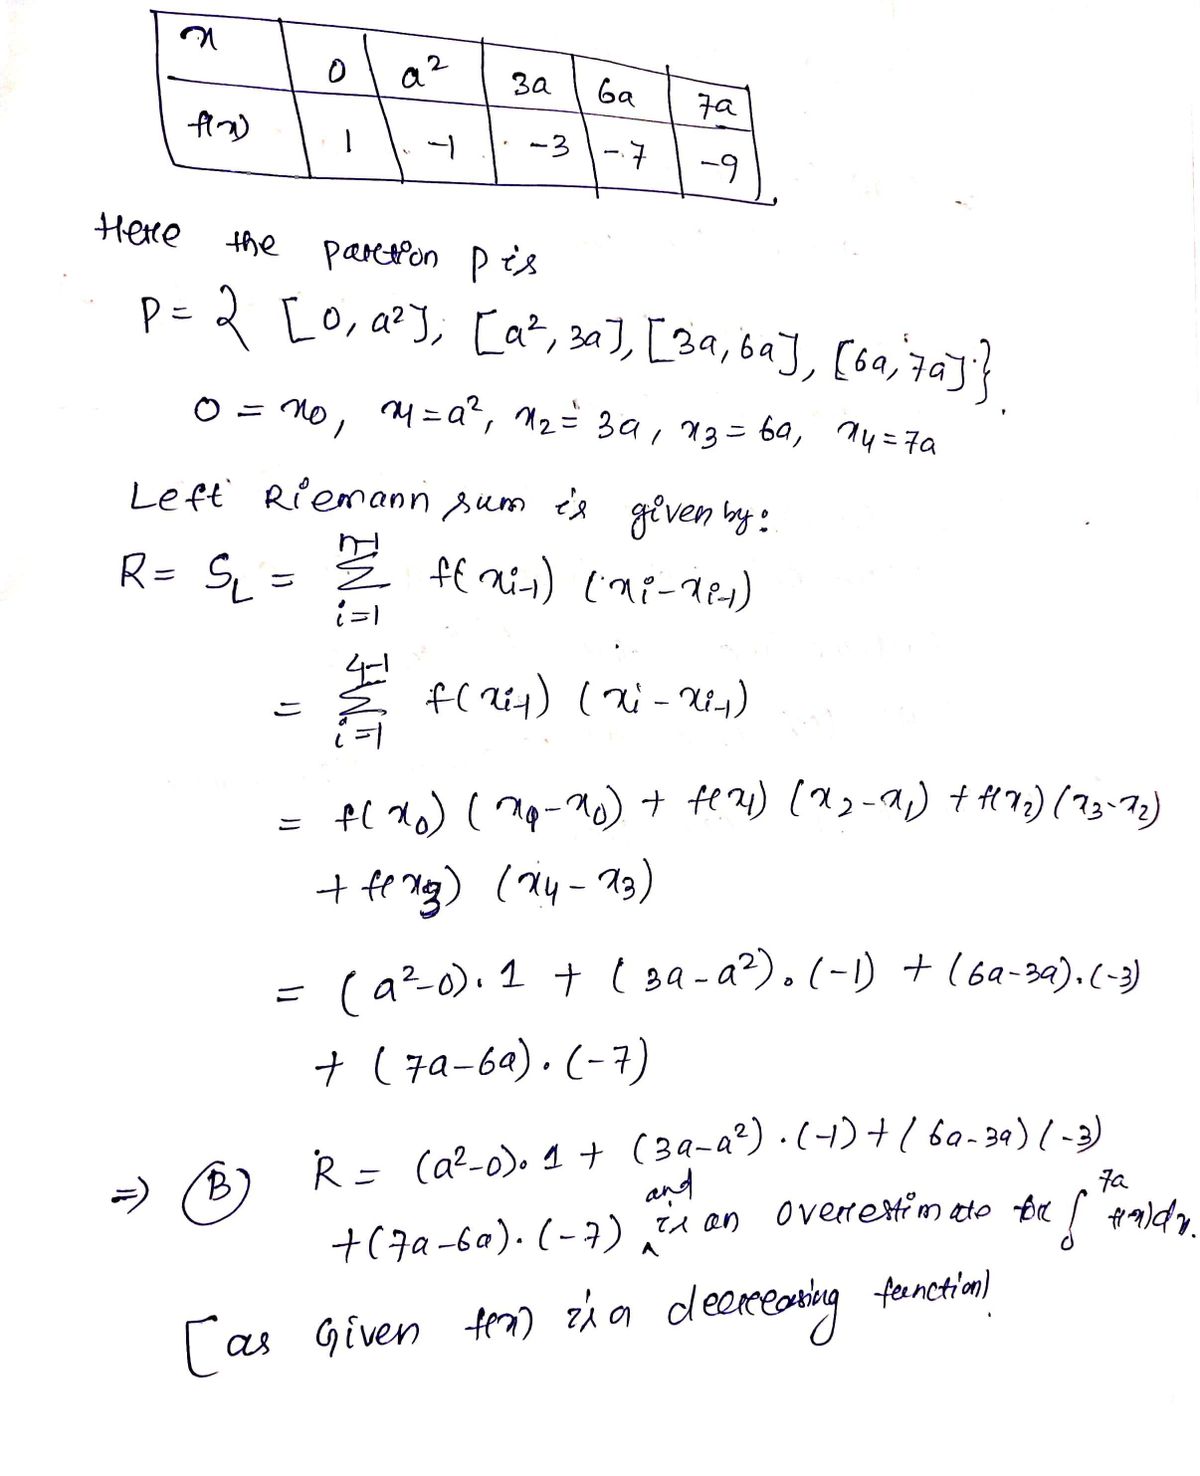 x 0 a² 3a 6a 7a
f(x) 1 -1 -3 -7 -9
Here the partition P is
P = { [0, a²], [a², 3a], [3a, 6a], [6a, 7a] }.
0 = x₀, x₁ = a², x₂ = 3a, x₃ = 6a, x₄ = 7a
Left Riemann sum is given by:
R = S_L = ∑_{i=1}^{n-1} f(x_{i-1}) (x_i - x_{i-1})
= ∑_{i=1}^{4-1} f(x_{i-1}) (x_i - x_{i-1})
= f(x₀) (x₁ - x₀) + f(x₁) (x₂ - x₁) + f(x₂) (x₃ - x₂)
+ f(x₃) (x₄ - x₃)
= (a² - 0) . 1 + (3a - a²) . (-1) + (6a - 3a) . (-3)
+ (7a - 6a) . (-7)
⇒ (B) R = (a² - 0) . 1 + (3a - a²) . (-1) + (6a - 3a) (-3)
+ (7a - 6a) . (-7) and is an overestimate for ∫₀^{7a} f(x)dx.
[as Given f(x) is a decreasing function].